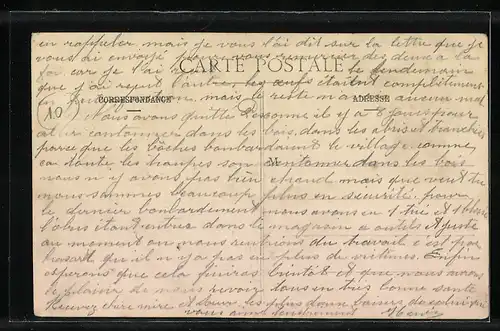 en rappeler mais je vous l'ai dit sur la lettre que je
vous ai envoyé
CARTE POSTALE
la car je l'ai le lendemain
que j'ai reçu l'autre, les œufs étaient complètement
mais le reste n'a aucun mal
CORRESPONDANCE
ADRESSE
10
Nous avons quitté il y a 8 jours pour
cantonner dans les bois, dans les abris et tranchées
parce que les boches bombardaient le village comme
toute les troupes son cantonner dans les bois
M
nous n'y avons pas bien chaud mais que veut tu
nous sommes beaucoup plus en sécurité pour
le dernier bombardement nous avons eu 1 tué et 1 blessé
l'obus étant entrez dans le magasin a outils et juste
au moment ou nous rentrions du travail c'est par
hasart qu'il n'y a pas eu plus de victimes. Enfin
esperons que cela finira bientôt et que nous aurons
le plaisir de nous revoir tous en très bonne santé
Recevez chère mère et sœur les plus doux baisers de celui qui
vous aime tendrement Henri